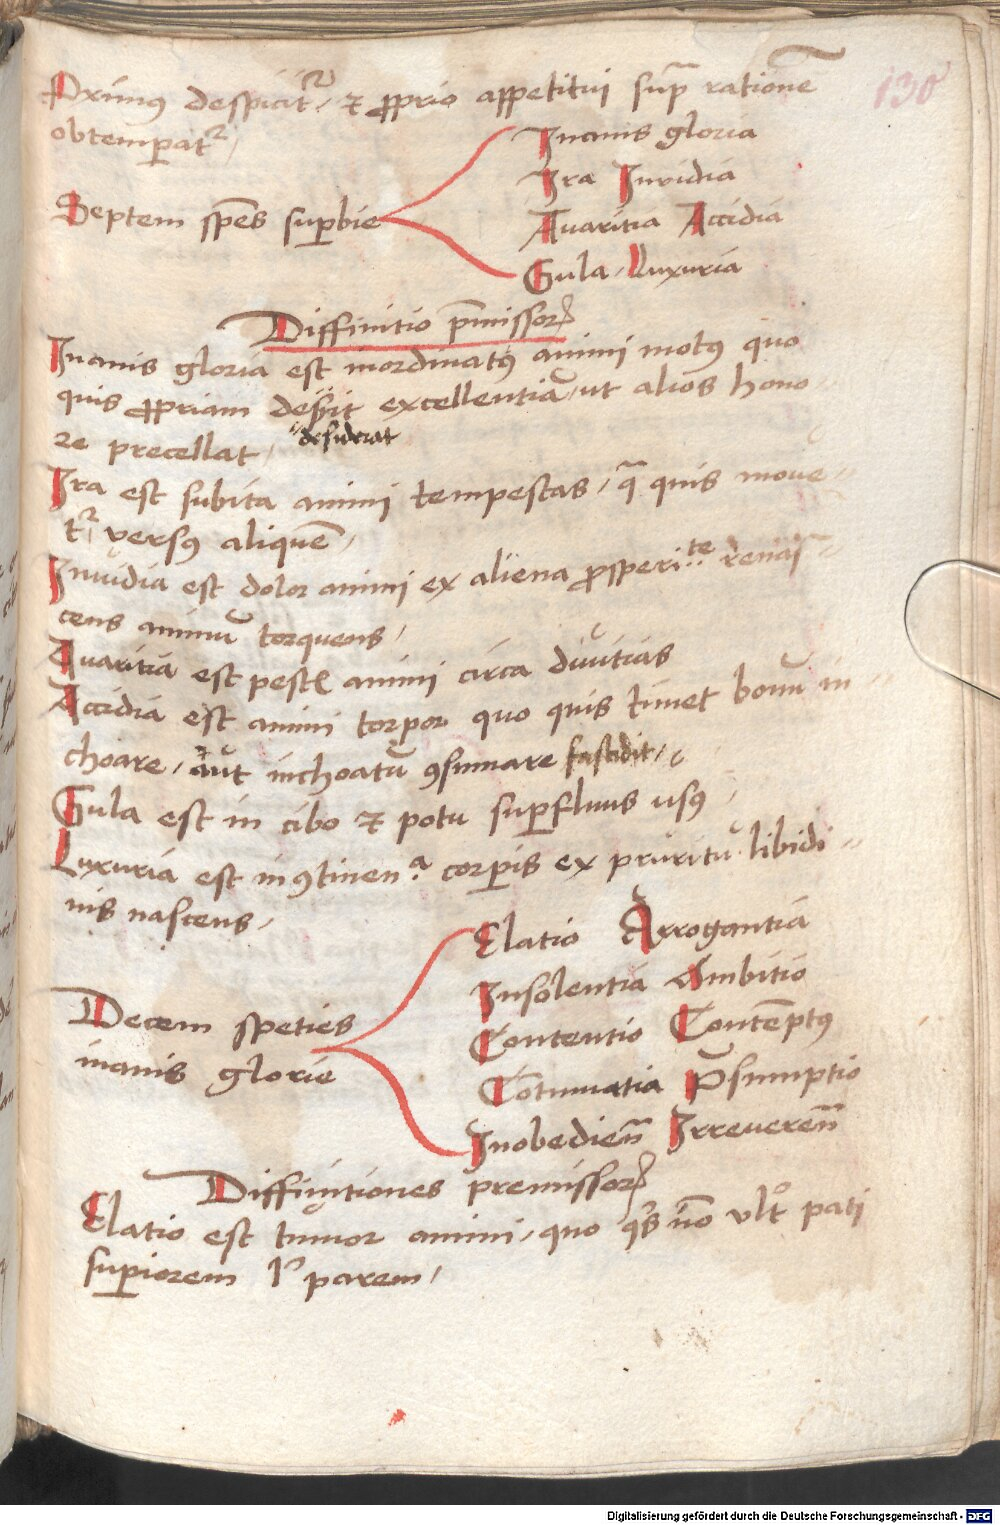 Pximus despicitr, ⁊ ꝓprio appetitui supra rationē
130
obtemperatr,
Septem spēs superbie
Inanis gloria
Ira Inuidia
Auaritia Accidia
Gula, Luxuria
Diffinitio p̄missorꝝ
Inanis gloria est inordinatꝰ animi motꝰ quo
quis ꝓpriam excellentiā, ut alios hono
re precellat, desiderat
Ira est subita animi tempestas, qᵃ quis moue
tr versꝰ aliquē,
Inuidia est dolor animi ex aliena ꝓsperi..te renas
cens animū torquens,
Auaritia est pestꝭ animi circa diuitias
Accidia est animi torpor quo quis timet bonū in
choare, aut inchoatū ꝯsumare fastidit,
Gula est in cibo ⁊ potu suꝑfluus usꝰ,
Luxuria est inꝯtinen.ᵃ corꝑis ex pruritu libidi
nis nascens,
Elatio Arrogantia
Insolentia Ambitio
Decem speties
Contentio Contēptꝰ
inanis glorie
Cōtumatia Psumptio
Inobedien̄ Irreueren̄
Diffinitiones premissorꝝ
Elatio est tumor animi, quo qis nō vltᵒ pati
suꝑiorem lʼ parem,
Digitalisierung gefördert durch die Deutsche Forschungsgemeinschaft - DFG